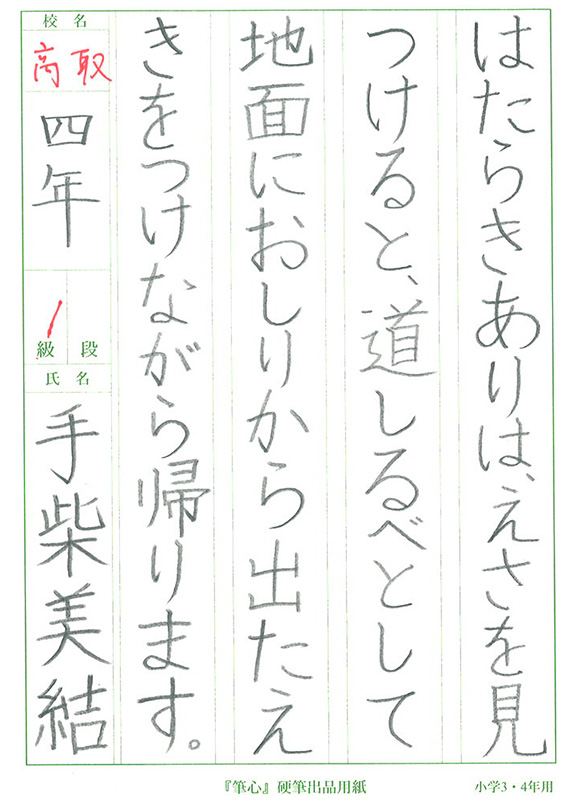 はたらきありは、えさを見
つけると、道しるべとして
地面におしりから出たえ
きをつけながら帰ります。
校名
高取
四年
1
級 段
氏名
手柴美結
『筆心』硬筆出品用紙
小学3・4年用